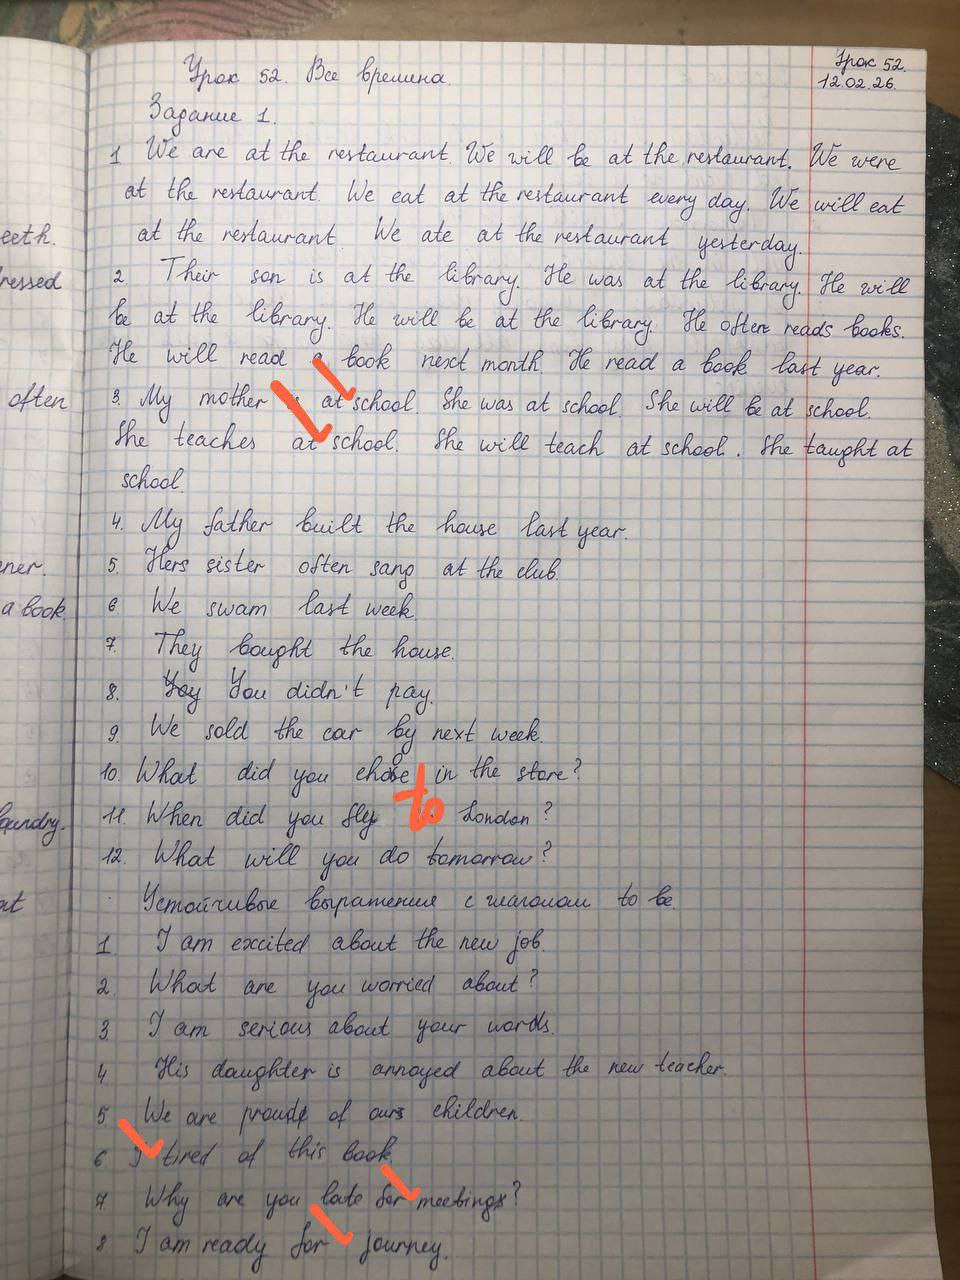 Урок 52. Все времина.
Урок 52.
12.02.26.
Задание 1.
1 We are at the restaurant. We will be at the restaurant. We were
at the restaurant. We eat at the restaurant every day. We will eat
at the restaurant. We ate at the restaurant yesterday.
2 Their son is at the library. He was at the library. He will
be at the library. He will be at the library. He often reads books.
He will read a book next month. He read a book last year.
3. My mother is at school. She was at school. She will be at school.
She teaches at school. She will teach at school. She taught at
school.
4. My father built the house last year.
5. Hers sister often sang at the club.
6 We swam last week.
7. They bought the house.
8. You didn't pay.
9. We sold the car by next week.
10. What did you chose in the store?
11. When did you fly to London?
12. What will you do tomorrow?
Устойчивые выражения с глаголом to be.
1. I am excited about the new job.
2. What are you worried about?
3 I am serious about your words.
4 His daughter is annoyed about the new teacher.
5 We are proud of ours children.
6 I tired of this book.
7 Why are you late for meetings?
8 I am ready for journey.
eeth.
ressed
often
ner.
a book
aundry.
at